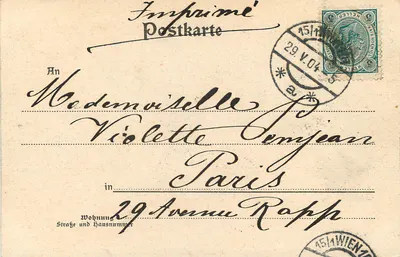 Imprimé
Postkarte
15/1 WIEN
29.V.04
*a*
An
Mademoiselle
Violette
in Paris
Wohnung
Straße und Hausnummer
29 Avenue Rapp
15/1 WIEN